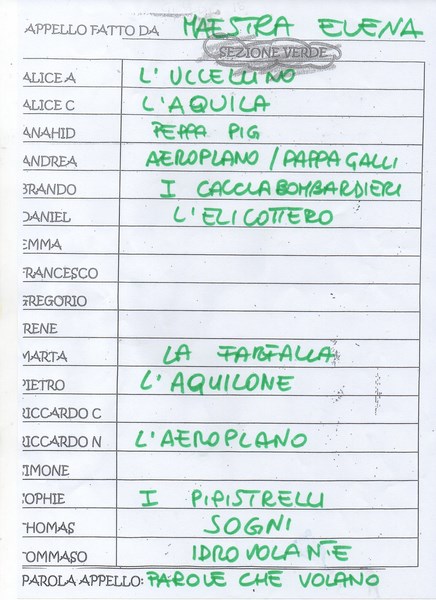 APPELLO FATTO DA MAESTRA ELENA
SEZIONE VERDE
ALICE A L'UCCELLINO
ALICE C L'AQUILA
ANAHID PEPPA PIG
ANDREA AEROPLANO / PAPPAGALLI
BRANDO I CACCIABOMBARDIERI
DANIEL L'ELICOTTERO
EMMA
FRANCESCO
GREGORIO
IRENE
MARTA LA FARFALLA
PIETRO L'AQUILONE
RICCARDO C
RICCARDO N L'AEROPLANO
SIMONE
SOPHIE I PIPISTRELLI
THOMAS SOGNI
TOMMASO IDROVOLANTE
PAROLA APPELLO: PAROLE CHE VOLANO